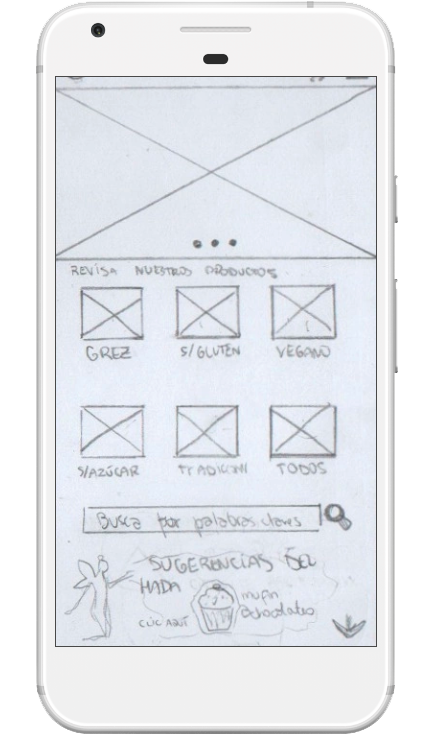 REVISA NUESTROS PRODUCTOS
GREZ S/GLUTEN VEGANO
S/AZÚCAR TODOS
Busca por palabras claves
SUGERENCIAS DEL
HADA
CLIC AQUÍ